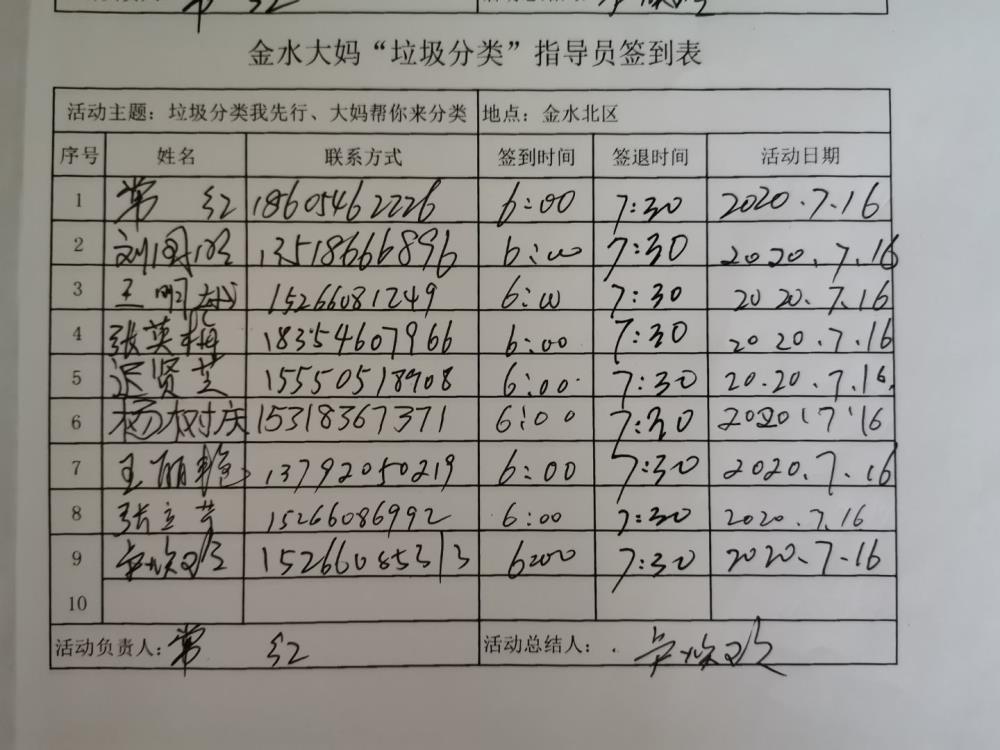 金水大妈“垃圾分类”指导员签到表
活动主题：垃圾分类我先行、大妈帮你来分类 地点：金水北区
序号 姓名 联系方式 签到时间 签退时间 活动日期
1 常 红 18605462226 6:00 7:30 2020.7.16
2 刘国 13518666896 6:00 7:30 2020.7.16
3 王明 15266081249 6:00 7:30 2020.7.16
4 张英梅 18354607966 6:00 7:30 2020.7.16
5 迟贤芝 15550518908 6:00 7:30 20.20.7.16
6 杨树庆 15318367371 6:00 7:30 2020.7.16
7 王丽艳 13792050219 6:00 7:30 2020.7.16
8 张立芳 15266086992 6:00 7:30 2020.7.16
9 15266085313 6:00 7:30 2020.7.16
10
活动负责人：常 红 活动总结人：